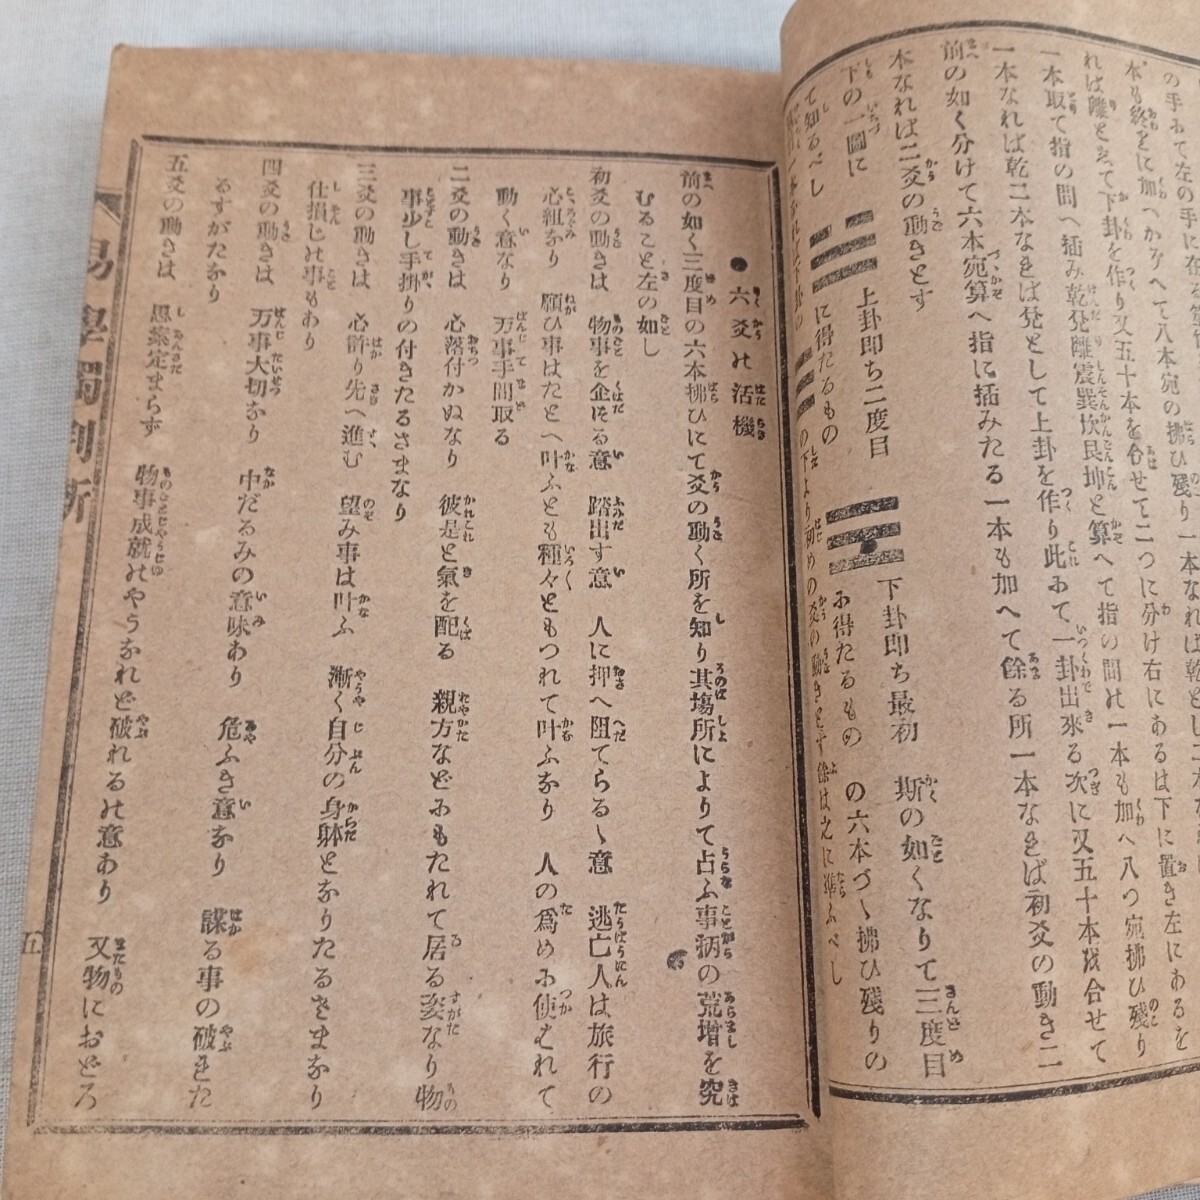 の手にて左の手に在る
本も終をに加へかぞへて八本宛の拂ひ殘り一本なれば乾とし二本
れば離とゑて下卦を作り又五十本を合せて二つに分け右にあるは下に置き左にあるを
一本取て指の間へ插み乾兌離震巽坎艮坤と算へて指の間の一本も加へ八つ宛拂ひ殘り
一本なれば乾二本なれば兌として上卦を作り此にて一卦出來る次に又五十本を合せて
前の如く分けて六本宛算へ指に插みたる一本も加へて餘る所一本なれば初爻の動き二
本なれば二爻の動きとす
上卦即ち二度目
下卦即ち最初
斯の如くなりて三度目
下の一圖に
に得たるもの
に得たるもの
の六本づゝ拂ひ殘りの
て知るべし
の下より初めの爻の動きとす餘は之に準ふべし
●六爻の活機
前の如く三度目の六本拂ひにて爻の動く所を知り其塲所によりて占ふ事柄の荒增を究
むること左の如し
初爻の動きは 物事を企はだる意 踏出す意 人に押へ阻てらるゝ意 逃亡人は旅行の
心組なり 願ひ事はたとへ叶ふとも種々ともつれて叶ふなり 人の爲めに使はれて
動く意なり 万事手間取る
二爻の動きは 心落付かぬなり 彼是と氣を配る 親方などにもたれて居る姿なり物
事少し手掛りの付きたるさまなり
三爻の動きは 心許り先へ進む 望み事は叶ふ 漸く自分の身躰となりたるさまなり
仕損じの事もあり
四爻の動きは 万事大切なり 中だるみの意味あり 危ふき意なり 謀る事の破れた
るすがたなり
五爻の動きは 思案定まらず 物事成就のやうなれど破れるの意あり 又物におどろ
易學獨判斷
五